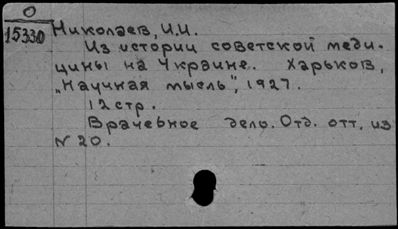 О
15330
Николаев, И.И.
Из истории советской меди-
цины на Украине. Харьков,
„Научная мысль", 1927.
12 стр.
Врачебное дело. Отд. отт. из
N 20.